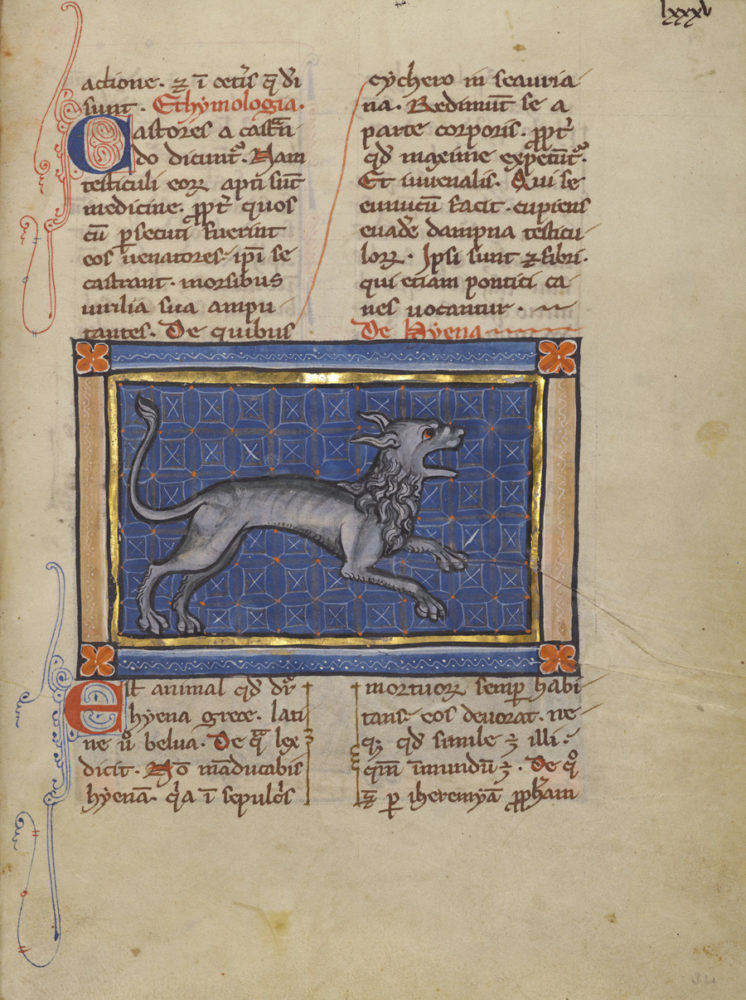 lxxxv
actione · ⁊ ī cet̄is q̄ dr̄i
sunt · Ethymologia ·
Castores a castrā
do dicunt᷑ · Nam
testiculi eoꝝ apti sūt
medicine · ꝓpt̄ quos
cū ꝑsecuti fuerint
eos uenatores · ip̄i se
castrant · morsibus
uirilia sua ampu
tantes · De quibus
cychero in scauria
na · Redimūt se a
parte corporis · ꝓpt̄
qd̄ maxime expetūt᷑ ·
Et iuuenalis · Qui se
eunucū facit · cupiens
euadē dampna testicu
loꝝ · Ipsi sunt ⁊ fibri ·
qui etiam pontici ca
nes uocantur ·
De Hyena
Est animal qd̄ dr̄
hyena grece · lati
ne ů belua · De q̄ lex
dicit · Nō māducabis
hyenā · q̇a ī sepulcr̄is
mortuoꝝ semper habi
tans · eos deuorat · ne
qꝫ qd̄ simile ē illi ·
qm̄ īmundū ē · De q̊
ꝑ iheremyā ꝓph̄am